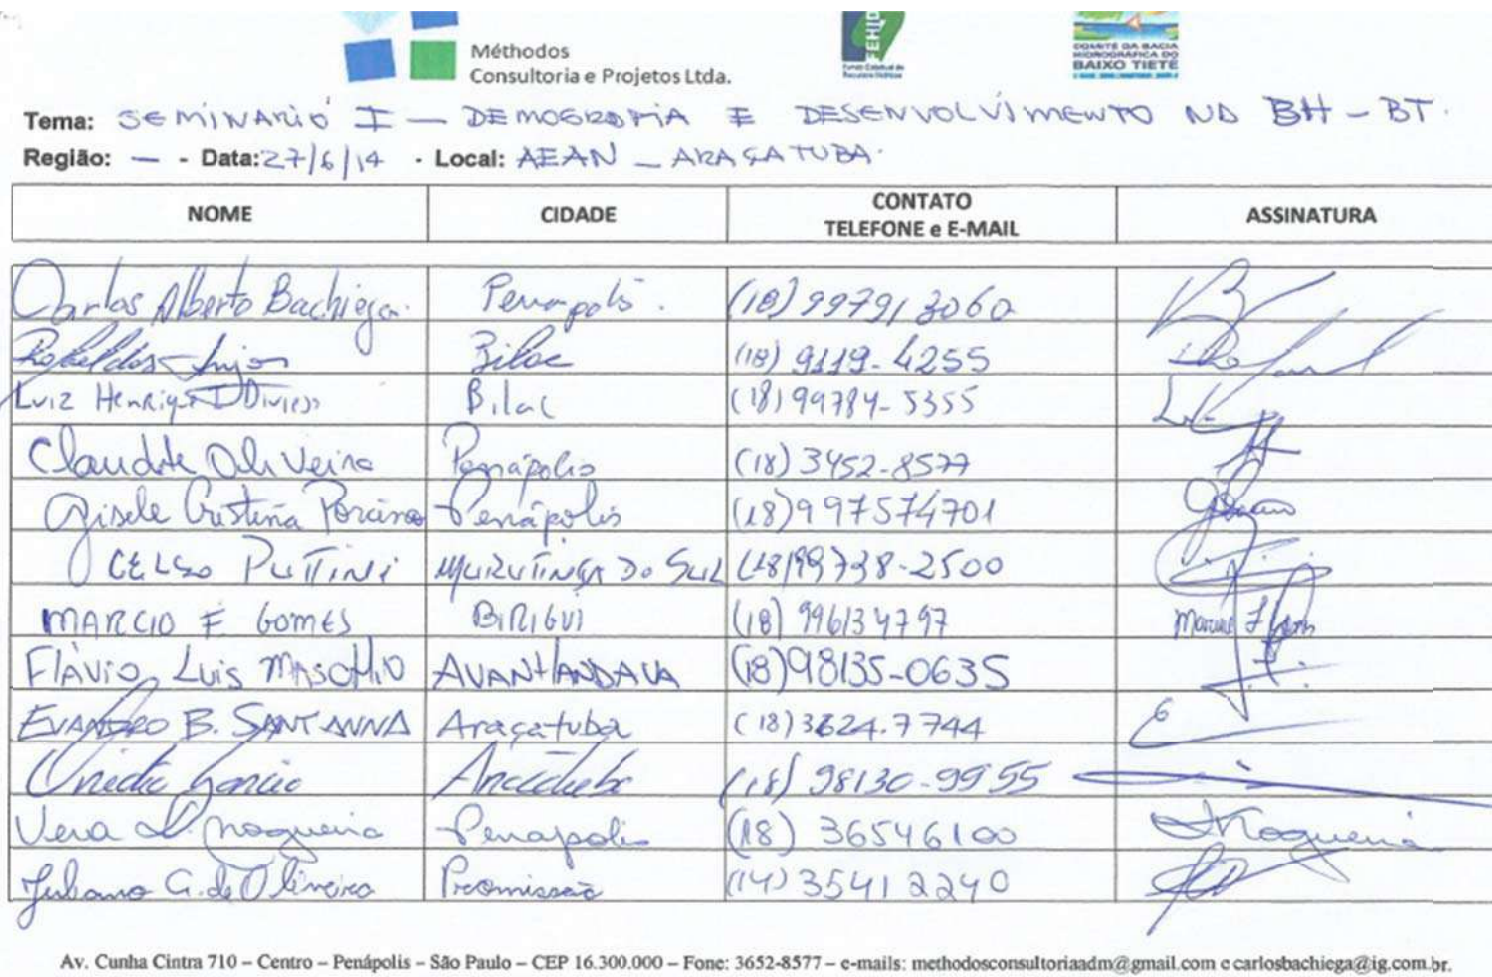 Méthodos
Consultoria e Projetos Ltda.
FEHIDRO
COMITÊ DA BACIA
HIDROGRÁFICA DO
BAIXO TIETÊ
Tema: SEMINARIO I — DEMOGRAFIA E DESENVOLVIMENTO NA BH - BT.
Região: — - Data: 27/6/14 - Local: AEAN - ARAÇATUBA.
NOME CIDADE CONTATO TELEFONE e E-MAIL ASSINATURA
Carlos Alberto Bachiega Penapolis. (18) 997913060
Bilac (18) 9119-4255
Luiz Henrique Bilac (18) 99784-5355
Claudete Oliveira Penápolis (18) 3452-8577
Gisele Cristina Porcino Penápolis (18) 997574701
CELSO PUTTINI MURUTINGA DO SUL (18) 99738-2500
MARCIO F GOMES BIRIGUI (18) 996134797
FLÁVIO LUIS MASCHIO AVANHANDAVA (18) 98135-0635
EVANDRO B. SANT'ANNA Araçatuba (18) 3624.7744
Garcia (18) 98130-9955
Vera L. Nogueira Penapolis (18) 36546100 Nogueira
Juliano G. de Oliveira Promissão (14) 35412240
Av. Cunha Cintra 710 – Centro – Penápolis – São Paulo – CEP 16.300.000 – Fone: 3652-8577 – e-mails: methodosconsultoriaadm@gmail.com e carlosbachiega@ig.com.br.